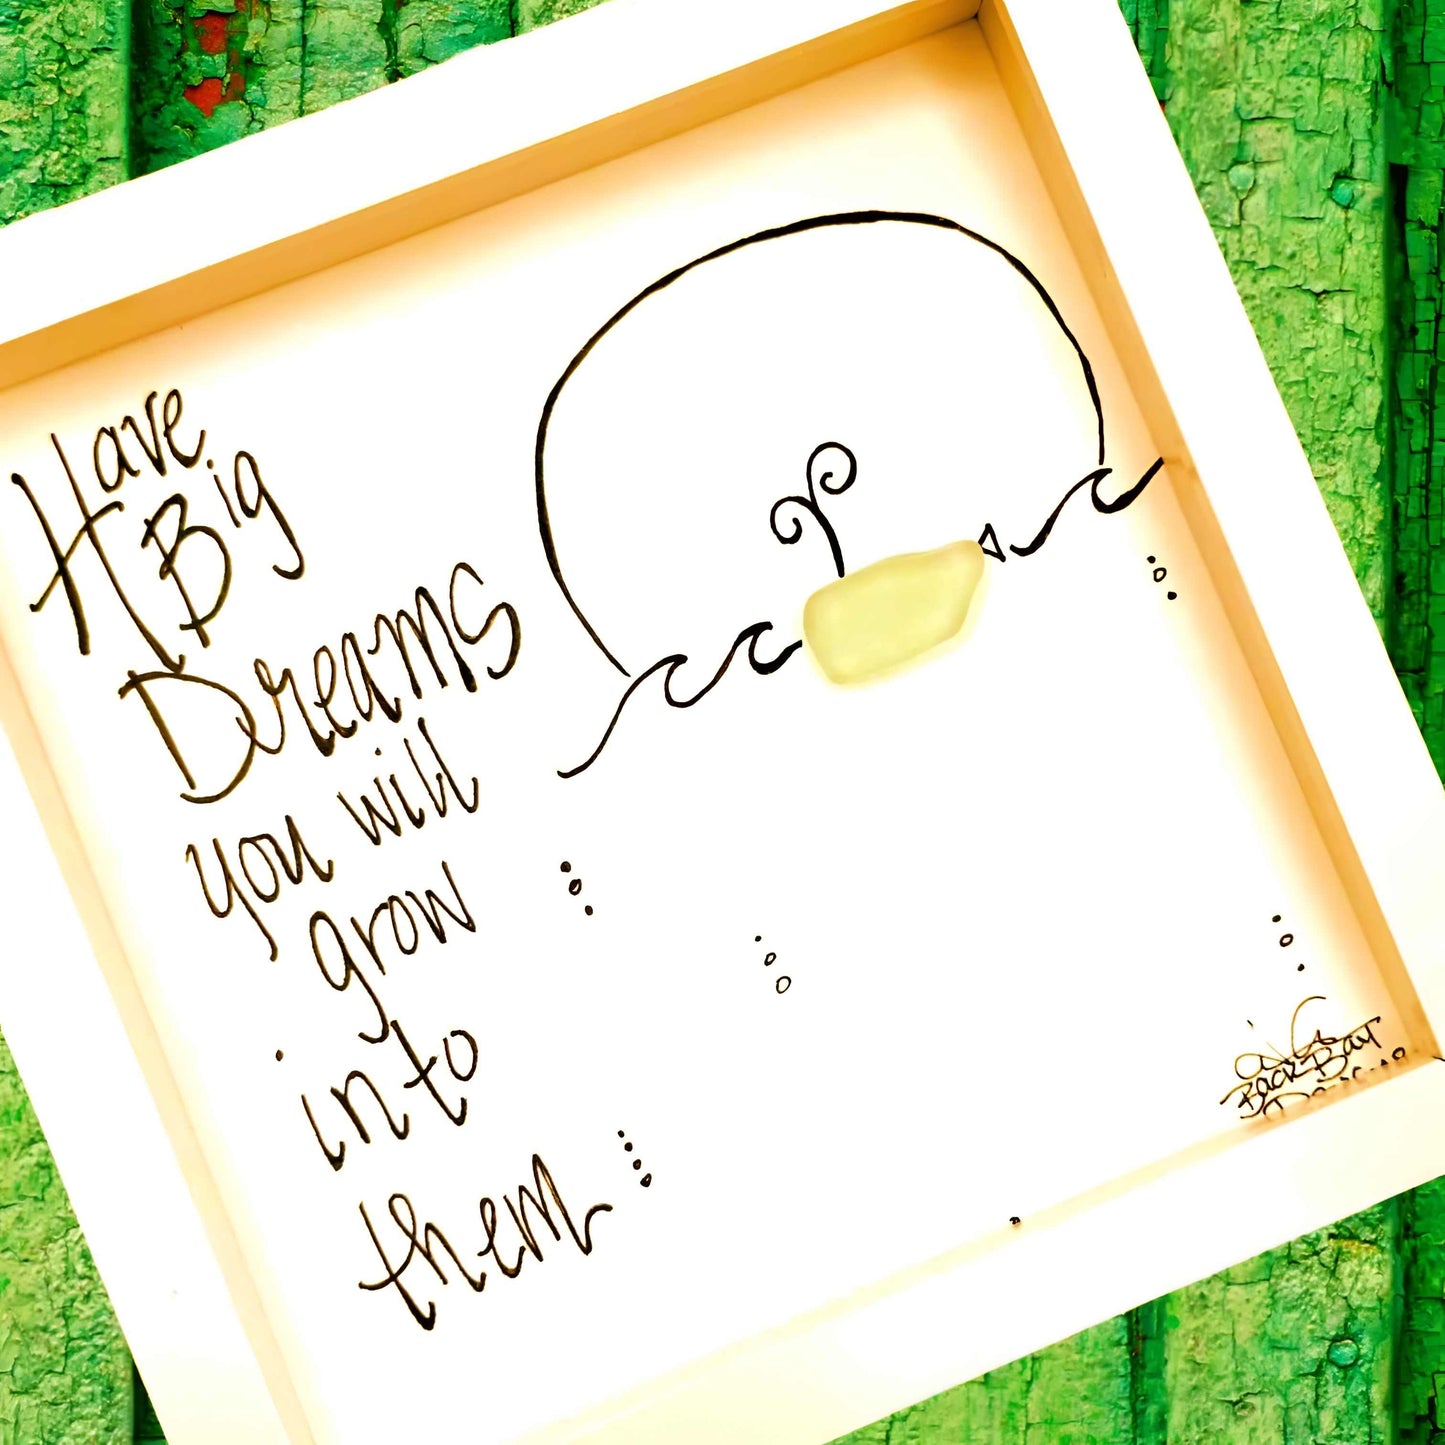 Have
Big
Dreams
you will
grow
into
them
Back Bay